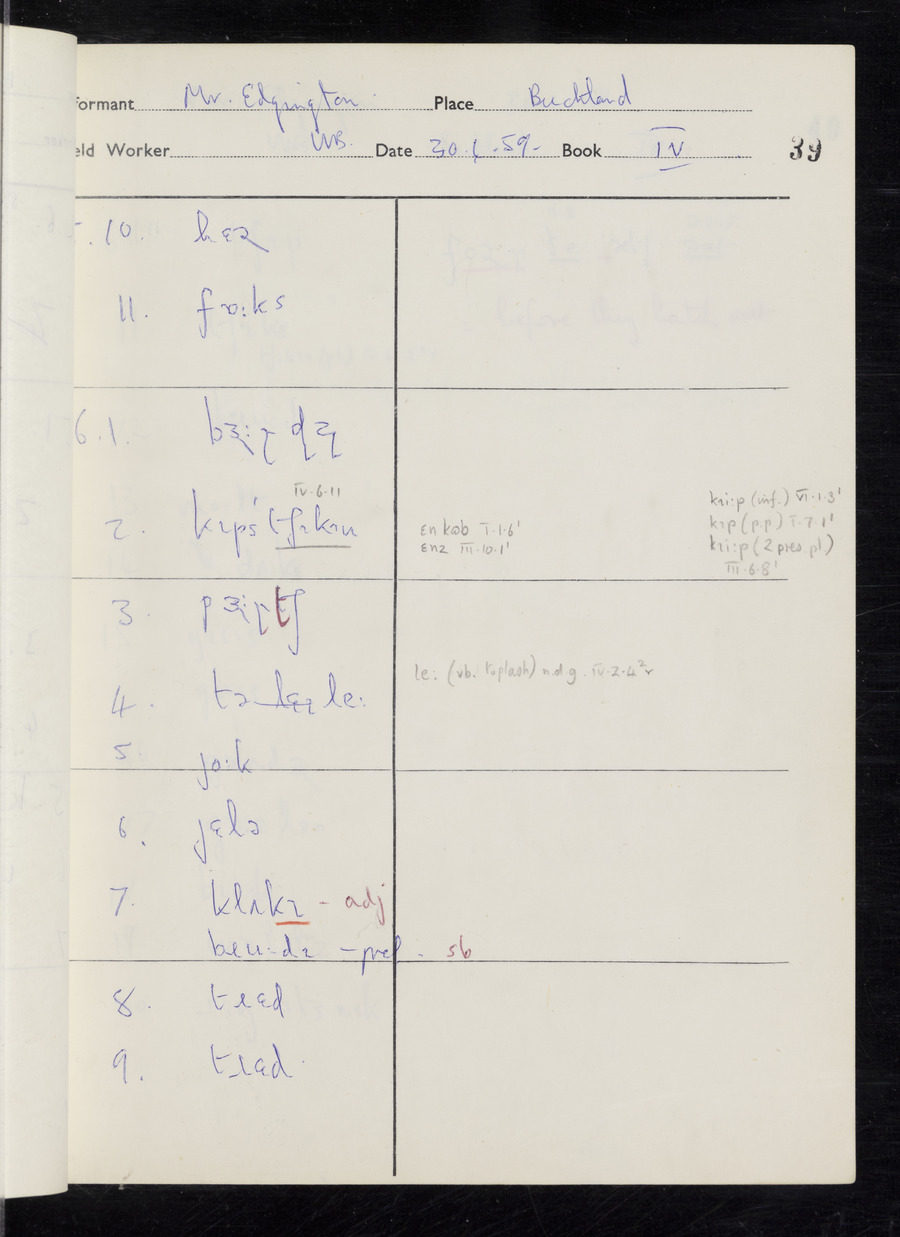 formant Mr. Edgington Place Buckland
eld Worker WB. Date 30.1.59- Book IV 39
10. hɛz
11. fɒ:ks
6.1. bɜ:ɽ
IV.6.11
2. kɪps tʃɪkɪn
en kɒb I.1.6'
enz III.10.1'
kri:p (inf.) VI.1.3'
kɪp (p.p) I.7.1'
kri:p (2 pres. pl.)
III.6.8'
3.
4. tə le:
le: (vb. to plash) n.d.g. IV.2.4²r
5. jo:k
6. jɛlə
7. klʌkɪ - adj
- pref. sb
8. tɹɛd
9. tɹɛd